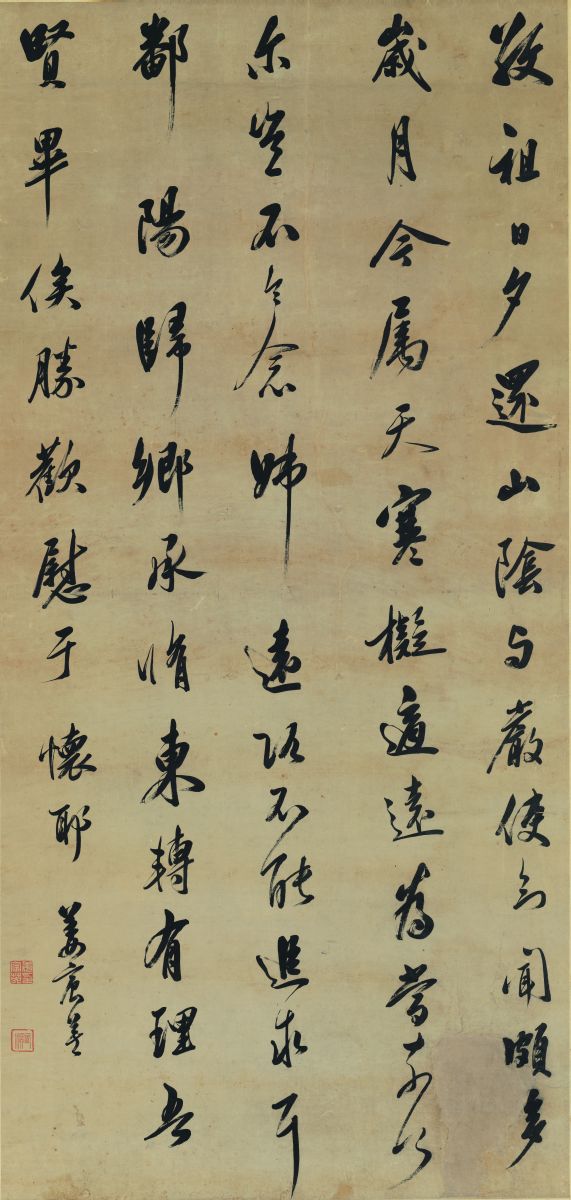 敬祖日夕還山陰与嚴使君聞頗多
歲月今屬天寒擬適遠為當奈何
尓豈不令念姊遠路不能追求耳
鄱陽歸鄉承脩東轉有理吾
賢畢俟勝歡慰于懷耶 姜宸英